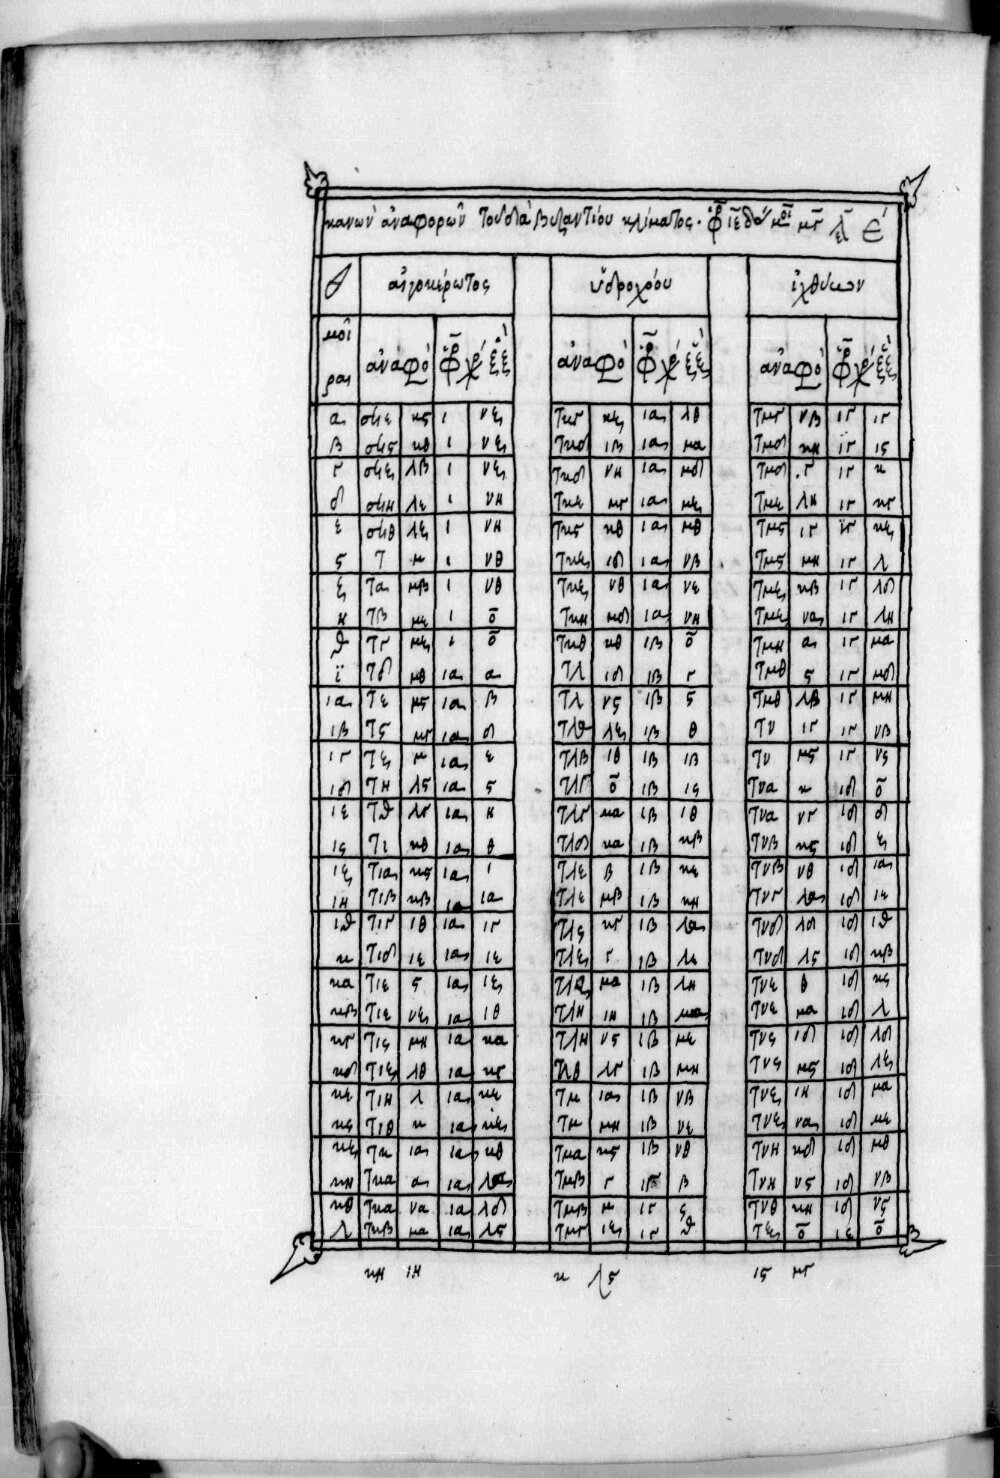 κανων ἀναφορῶν τοῦ διὰ βυζαντίου κλίματος
αἰγοκέρωτος ὑδροχόου ἰχθύων
μοῖ
ραι ἀναφο ἀναφο ἀναφο
α σϟε κϛ ι νζ τκγ κζ ια λθ τμγ νβ ιγ ιγ
β σϟϛ κθ ι νζ τκδ ιβ ια μα τμδ κη ιγ ιϛ
γ σϟζ λβ ι νζ τκδ νη ια μδ τμδ γ ιγ κ
δ σϟη λε ι νη τκε μγ ια με τμε λη ιγ κγ
ε σϟθ λζ ι νη τκϛ κθ ια μθ τμϛ ιγ ιγ κζ
ϛ τ μ ι νθ τκζ ιδ ια νβ τμϛ μη ιγ λ
ζ τα μβ ι νθ τκζ νθ ια νε τμζ κβ ιγ λδ
η τβ με ι ο τκη μδ ια νη τμζ να ιγ λη
θ τγ μζ ι ο τκθ κθ ιβ ο τμη α ιγ μα
ι τδ μθ ια α τλ ιδ ιβ γ τμθ ϛ ιγ μδ
ια τε μϛ ια β τλ νϛ ιβ ϛ τμθ λθ ιγ μη
ιβ τϛ μγ ια δ τλα λζ ιβ θ τν ιγ ιγ νβ
ιγ τζ μ ια ε τλβ ιθ ιβ ιβ τν μϛ ιγ νϛ
ιδ τη λϛ ια ϛ τλγ ο ιβ ιϛ τνα κ ιδ ο
ιε τθ λγ ια η τλγ μα ιβ ιθ τνα νγ ιδ δ
ιϛ τι κθ ια θ τλδ κα ιβ κβ τνβ κϛ ιδ ζ
ιζ τια κϛ ια ι τλε β ιβ κε τνβ νθ ιδ ια
ιη τιβ κβ ια ια τλε μβ ιβ κη τνγ λα ιδ ιε
ιθ τιγ ιθ ια ιγ τλϛ κγ ιβ λα τνδ λδ ιδ ιθ
κ τιδ ιε ια ιε τλζ γ ιβ λε τνδ λϛ ιδ κβ
κα τιε ϛ ια ιζ τλζ μα ιβ λη τνε θ ιδ κϛ
κβ τιε νζ ια ιθ τλη ιη ιβ μα τνε μα ιδ λ
κγ τιϛ μη ια κα τλη νϛ ιβ με τνϛ ιδ ιδ λδ
κδ τιζ λθ ια κγ τλθ λγ ιβ μη τνϛ μϛ ιδ λζ
κε τιη λ ια κε τμ ια ιβ νβ τνζ ιη ιδ μα
κϛ τιθ κ ια κζ τμ μη ιβ νε τνζ να ιδ με
κζ τκ ια ια κθ τμα κϛ ιβ νθ τνη κδ ιδ μθ
κη τκα α ια λα τμβ γ ιγ β τνη νϛ ιδ νβ
κθ τκα να ια λδ τμβ μ ιγ ϛ τνθ κη ιδ νϛ
λ τκβ μα ια λϛ τμγ ιζ ιγ θ τξ ο ιε ο
κη ιη κ λϛ ιϛ μγ